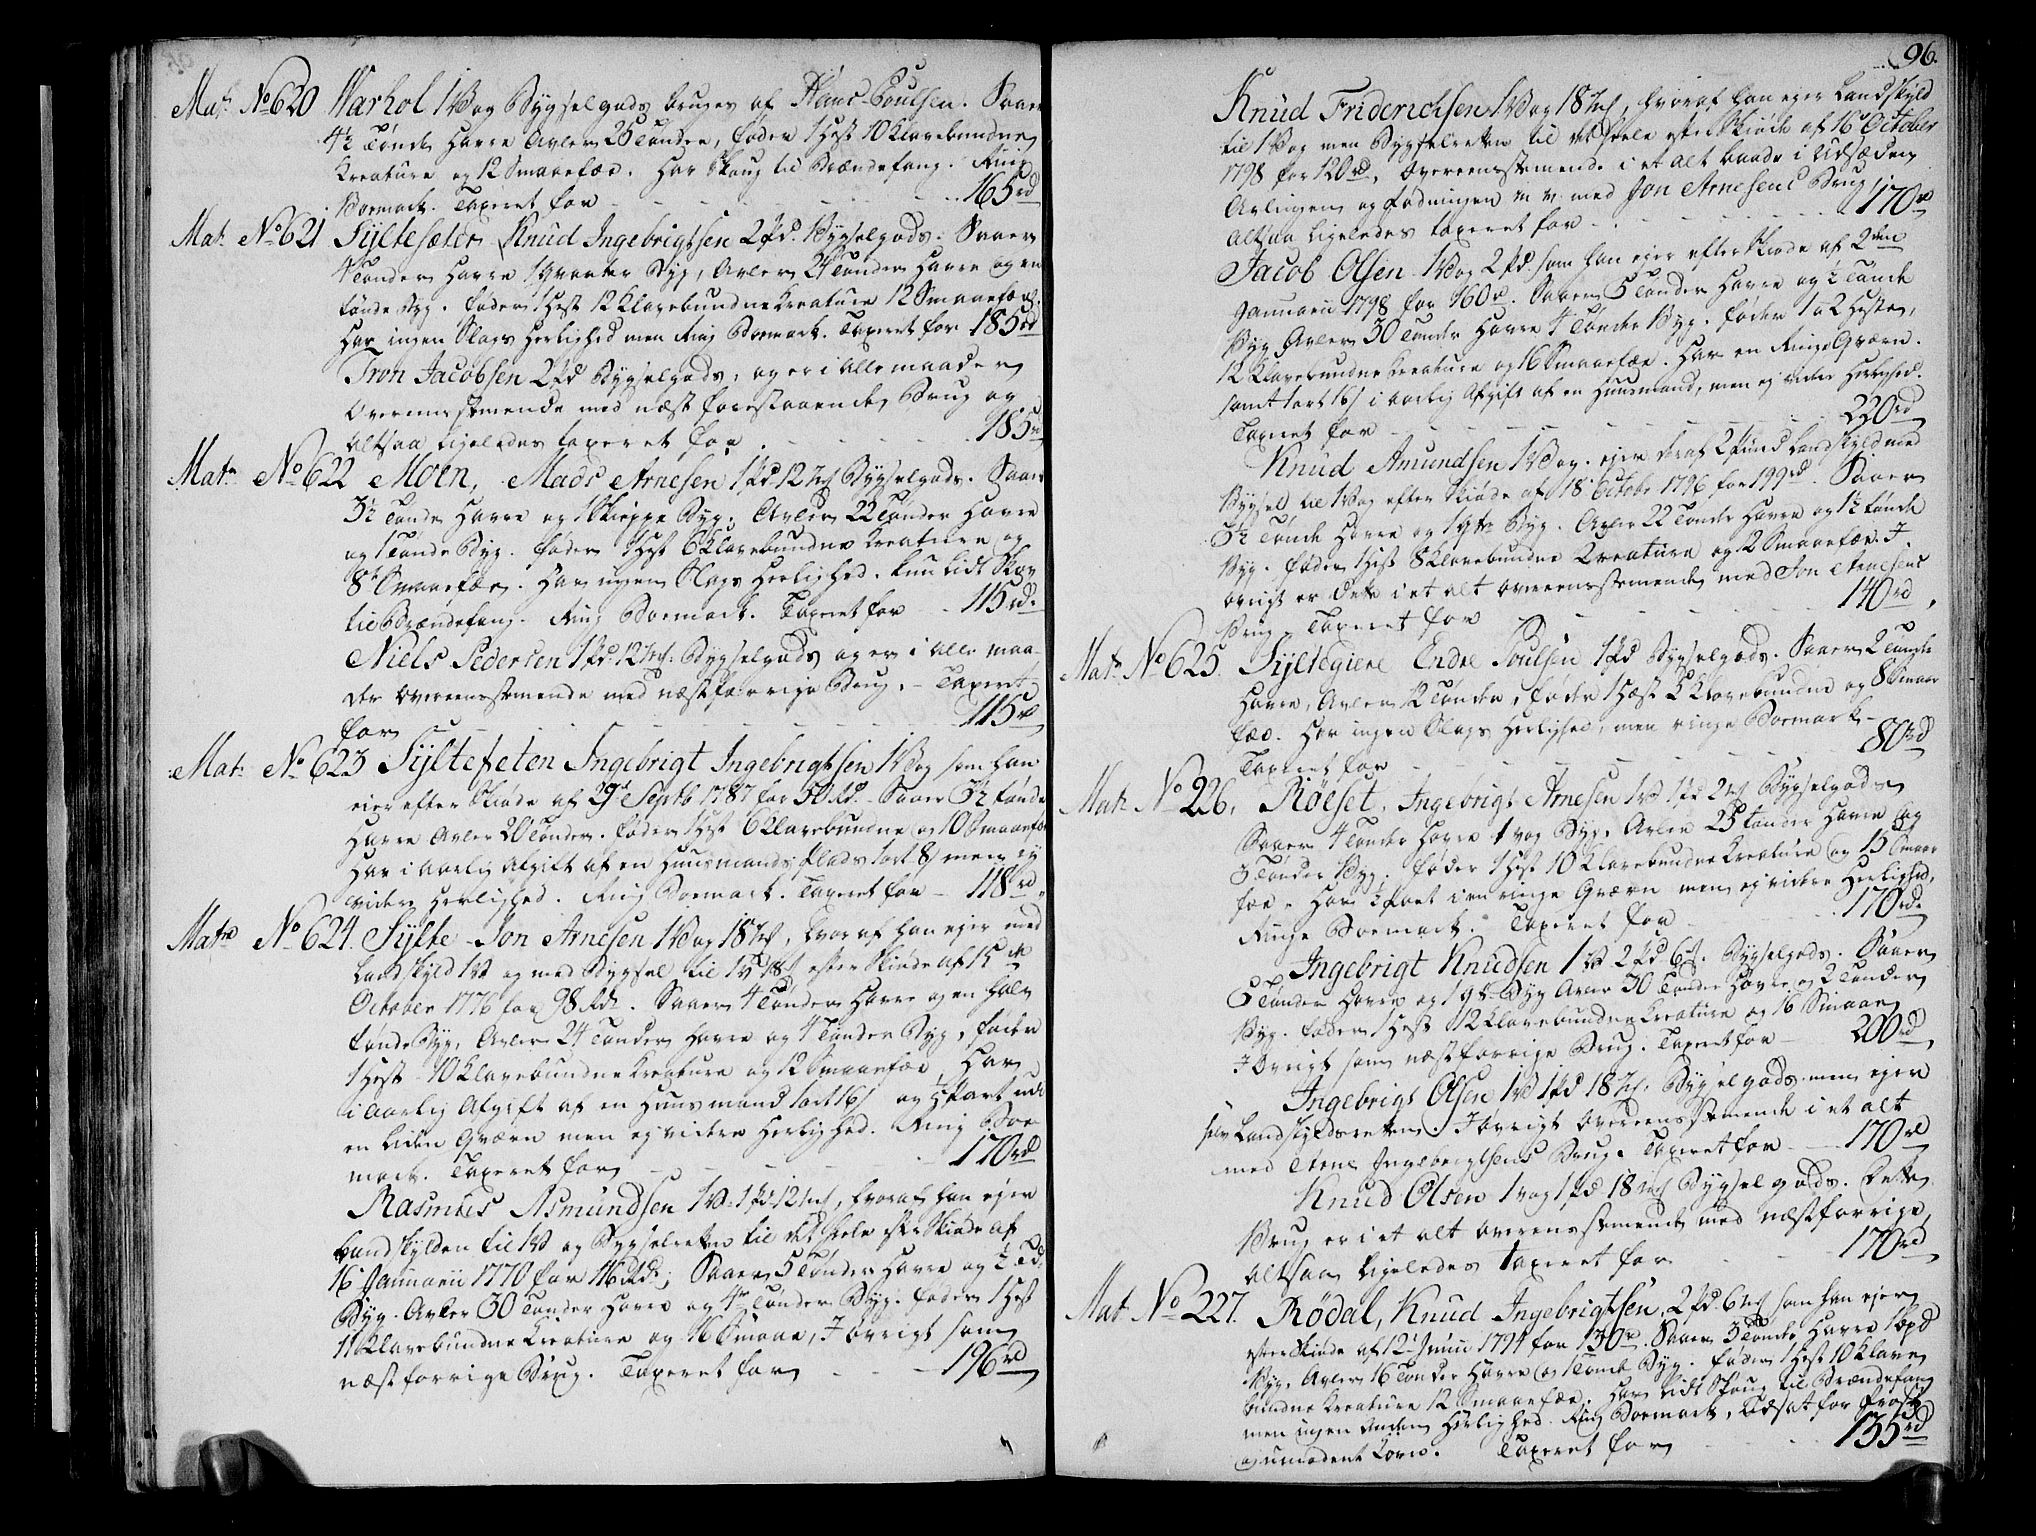 Mat: No 620 Warhol 1 Vog Bygselgods bruges af Hans Poulsen. Saaer
4½ Tønde Havre Avler 25 Tønder, føder 1 Hest 10 Klavebundne
Kreature og 12 Smaaefæe. Har Skoug til Brændefang. Ring
Boemark. Taxeret for - - - 165 rd
Mat: No 621 Syltesæter Knud Ingebrigtsen 2 Pd. Bygselgods. Saaer
4 Tønder Havre 1 Qvarter Byg, Avler 24 Tønder Havre og en
tønde Byg. føder 1 Hest 12 Klavebundne Kreature 12 Smaaefæe.
Har ingen Slags Herlighed men Ring Boemark. Taxeret for 185 rd
Tron Jacobsen 2 Pd Bygselgods, og er i alle maader
Overeensstemende med næst forestaaende Brug og
altsaa ligeledes taxeret for - - - 185 rd
Matr No 622 Moen, Mads Arnesen 1 Pd 12 Mk Bygselgods. Saaer
3½ Tønde Havre og 1 Skieppe Byg. Avler 22 Tønder Havre
og 1 Tønde Byg. føder 1 Hest 6 Klavebundne Kreature og
8 Smaaefæe. Har ingen Slags Herlighed. kun lidt Skov
til Brændefang. Ring Boemark. Taxeret for - - 115 rd.
Niels Pedersen 1 Pd. 12 Mk. Bygselgods og er i alle maa-
der overeensstemende med næstforrige Brug. - Taxeret
for - - - 115 rd
Mat: No 623 Syltefeten Ingebrigt Ingebrigtsen 1 Vog som han
eier efter Skiøde af 29de Septb 1787 for 50 Rd. - Saaer 3½ tønde
Havre Avler 20 Tønder. føder 1 Hest 6 Klavebundne og 10 Smaaefæe
Har i aarlig Afgift af en Huusmands Plads 1 ort 8 s men ey
videre Herlighed. Ring Boemark. Taxeret for - 118 rd.
Matr No 624. Sylte - Jon Arnesen 1 Vog 18 Mk, hvoraf han ejer med
Landskyld 1 V og med Bygsel til 1 V 18 efter Skiøde af 15de
October 1776 for 98 Rd. Saaer 4 Tønder Havre og en halv
tønde Byg, Avler 24 Tønder Havre og 4 Tønder Byg, føder
1 Hest 10 Klavebundne Kreature og 12 Smaaefæe, Har
i aarlig Afgift af en Huusmand 1 ort 16 s og ½ Part udi
en liden Qværn men ej videre Herlighed. Ring Boe-
mark. Taxeret for - - - 170 rd
Rasmus Asmundsen 1 V. 1 Pd. 12 Mk, hvoraf han ejer
Landskylden til 1 V og Bygselretten til det heele efter Skiøde af
16 Januarii 1770 for 116 Rd. Saaer 5 Tønder Havre og ½ Td.
Byg. Avler 30 Tønder Havre og 4 Tønder Byg. føder 1 Hest
11 Klavebundne Kreature og 16 Smaae, I øvrigt som
næstforrige Brug. Taxeret for - - - 196 rd
96.
Knud Friderichsen 1 Vog 18 Mk, hvoraf han ejer Landskyld
til 1 Vog men Bygselretten til det heele efter Skiøde af 16 October
1798 for 120 rd, Overeensstemende i et alt baade i Udsæden
Avlingen og fødningen m. v. med Jon Arnesens Brug
altsaa ligeledes taxeret for - - - 170 rd
Jacob Olsen 1 Vog 2 Pd. som han ejer efter Skiøde af 2den
Januarii 1798 for 160 rd. Saaer 5 Tønder Havre og ½ Tønde
Byg Avler 30 Tønder Havre 4 Tønder Byg. føder 1 a 2 Heste,
12 Klavebundne Kreature og 16 Smaaefæe. Har en Ringe Qværn.
samt 1 ort 16 s i aarlig Afgift af en Huusmand, men ej videre Herlighed.
Taxeret for - - - 220 rd
Knud Amundsen 1 Vog. ejer deraf 2 pund Landskyld med
Bygsel til 1 Vog efter Skiøde af 18 October 1796 for 199 rd. Saaer
3½ Tønde Havre og 1 qtr Byg. Avler 22 Tønder Havre og 1½ tønde
Byg. føder 1 Hest 8 Klavebundne Kreature og 12 Smaaefæe. I
øvrigt er dette i et alt overeensstemende med Jon Arnesens
Brug. Taxeret for - - - 140 rd,
Matr No 625. Syltegiere Endre Poulsen 1 Pd Bygselgods. Saaer 2 Tønde
Havre, Avler 12 Tønder, føder 1 Hæst 5 Klavebundne og 8 Smaae
fæe. Har ingen Slags Herlighed, men ringe Boemark -
Taxeret for - - - 80 rd
Mat: No 226. Røeset. Ingebrigt Arnesen 1 V. 1 Pd 2 Mk Bygselgods
Saaer 4 Tønder Havre 1 vog Byg. Avler 25 tønder Havre og
3 Tønder Byg. føder 1 Hest 10 Klavebundne Kreature og 15 Smaae
fæe. Har ½ part i en ringe Qværn men ej videre Herlighed,
Ringe Boemark. Taxeret for - - - 170 rd.
Ingebrigt Knudsen 1 V 2 Pd 6 Mk. Bygselgods. Saaer
5 Tønder Havre og 1 qt Byg Avler 30 Tønder Havre og 2 Tønder
Byg. føder 1 Hest 12 Klavebundne Kreature og 16 Smaae
I øvrigt som næstforrige Brug. Taxeret for - 200 rd,
Ingebrigt Olsen 1 V 1 Pd 18 Mk. Bygselgods men ejer
selv Landskyldsretten. I øvrigt overeensstemende i et alt
med Arne Ingebrigtsens Brug. Taxeret for - 170 rd
Knud Olsen 1 vog 1 Pd 18 Mk Bygselgods. Dette
Brug er i et alt overeensstemende med næstforrige,
altsaa ligeledes taxeret for - - - 170 rd
Mat No 227. Rødal, Knud Ingebrigtsen, 2 Pd. 6 Mk som han ejer
efter Skiøde af 12 Junii 1794 for 130 rd. Saaer 3 Tønde Havre 1 Spd
Byg, Avler 16 Tønder Havre og 1 Tønde Byg. føder 1 Hest 10 Klave
bundne Kreature 12 Smaaefæe. Har lidt Skoug til Brændefang
men ingen anden Herlighed. Ring Boemark, Udsat for frost
og umodent Korn. Taxeret for - - - 135 rd